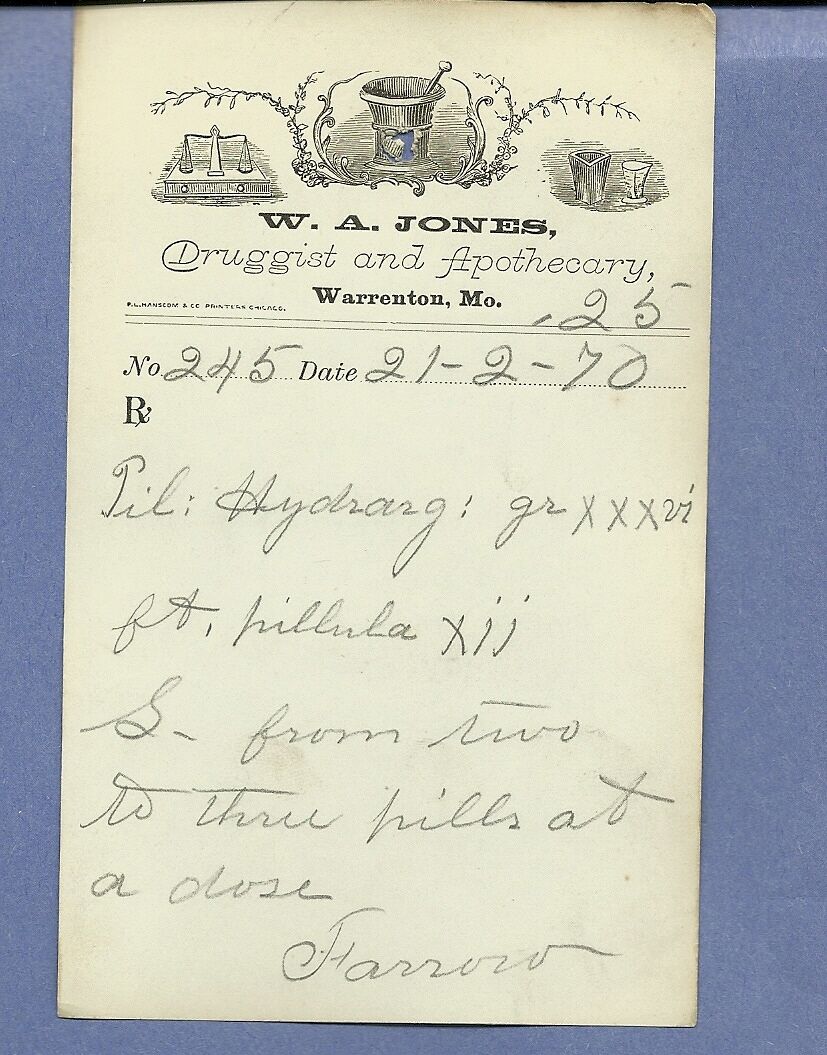 W. A. JONES,
Druggist and Apothecary,
Warrenton, Mo.
P. L. HANSCOM & CO PRINTERS CHICAGO.
.25
No 245 Date 21-2-70
℞
Pil: Hydrarg: gr xxxvi
ft. pillula xii
S- from two
to three pills at
a dose
Farrow